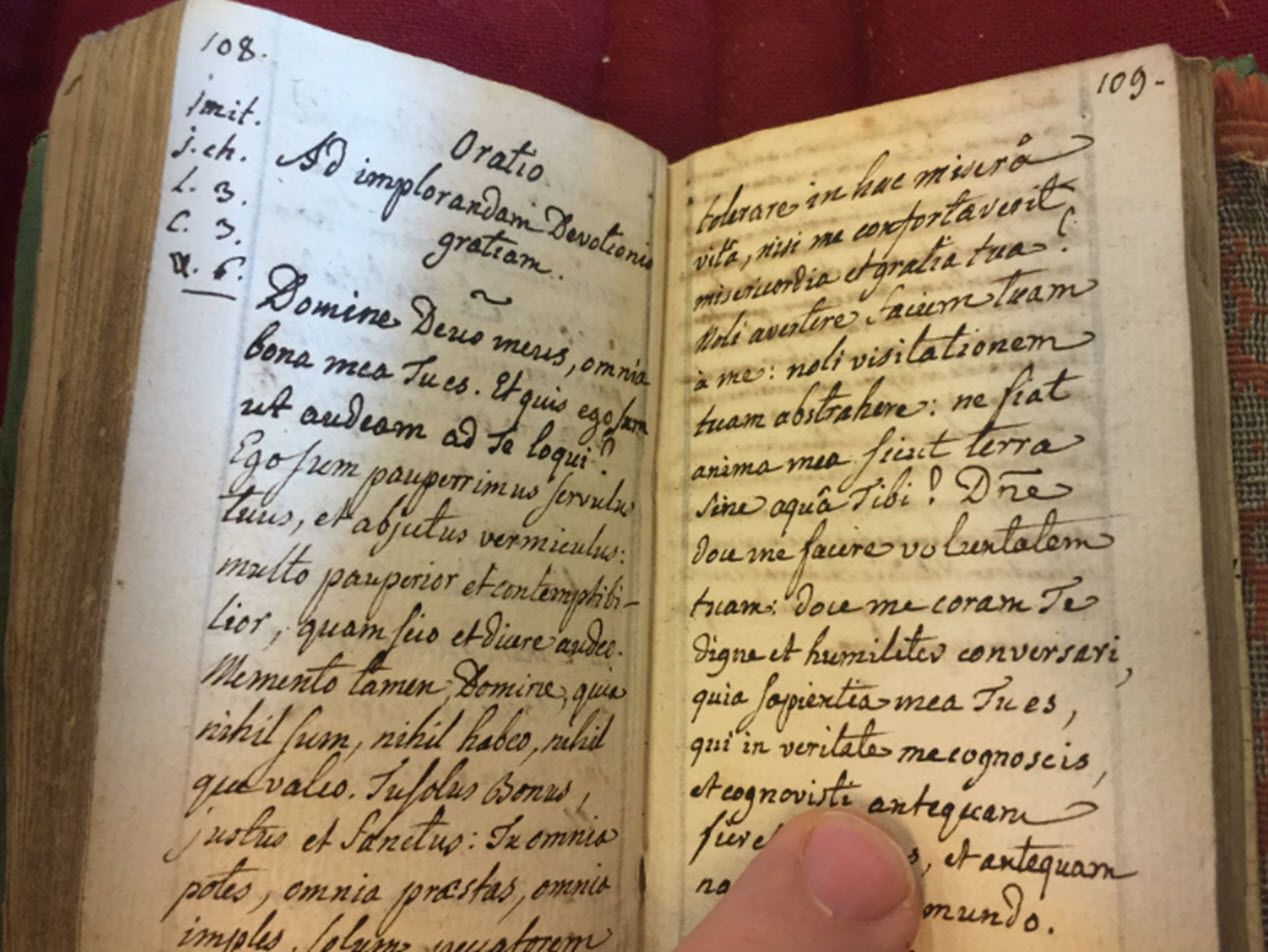 108.
imit.
j. ch.
L. 3.
C. 3.
Oratio
Ad implorandam Devotionis
gratiam.
Domine Deus meus, omnia
bona mea Tu es. Et quis ego sum
ut audeam ad Te loqui?
Ego sum pauperrimus servulus
tuus, et abjectus vermiculus:
multo pauperior et contemptibi-
lior, quam scio et dicere audeo.
Memento tamen, Domine, quia
nihil sum, nihil habeo, nihil
que valeo. Tu solus Bonus,
justus et Sanctus: Tu omnia
potes, omnia præstas, omnia
imples, solum peccatorem
109.
tolerare in hac miserâ
vitâ, nisi me confortaverit
misericordia et gratia tua?
Noli avertere faciem tuam
à me: noli visitationem
tuam abstrahere: ne fiat
anima mea sicut terra
sine aquâ Tibi! Dñe
doce me facere voluntatem
tuam: doce me coram Te
digne et humiliter conversari,
quia sapientia mea Tu es,
qui in veritate me cognoscis,
et cognovisti antequam
, et antequam
mundo.